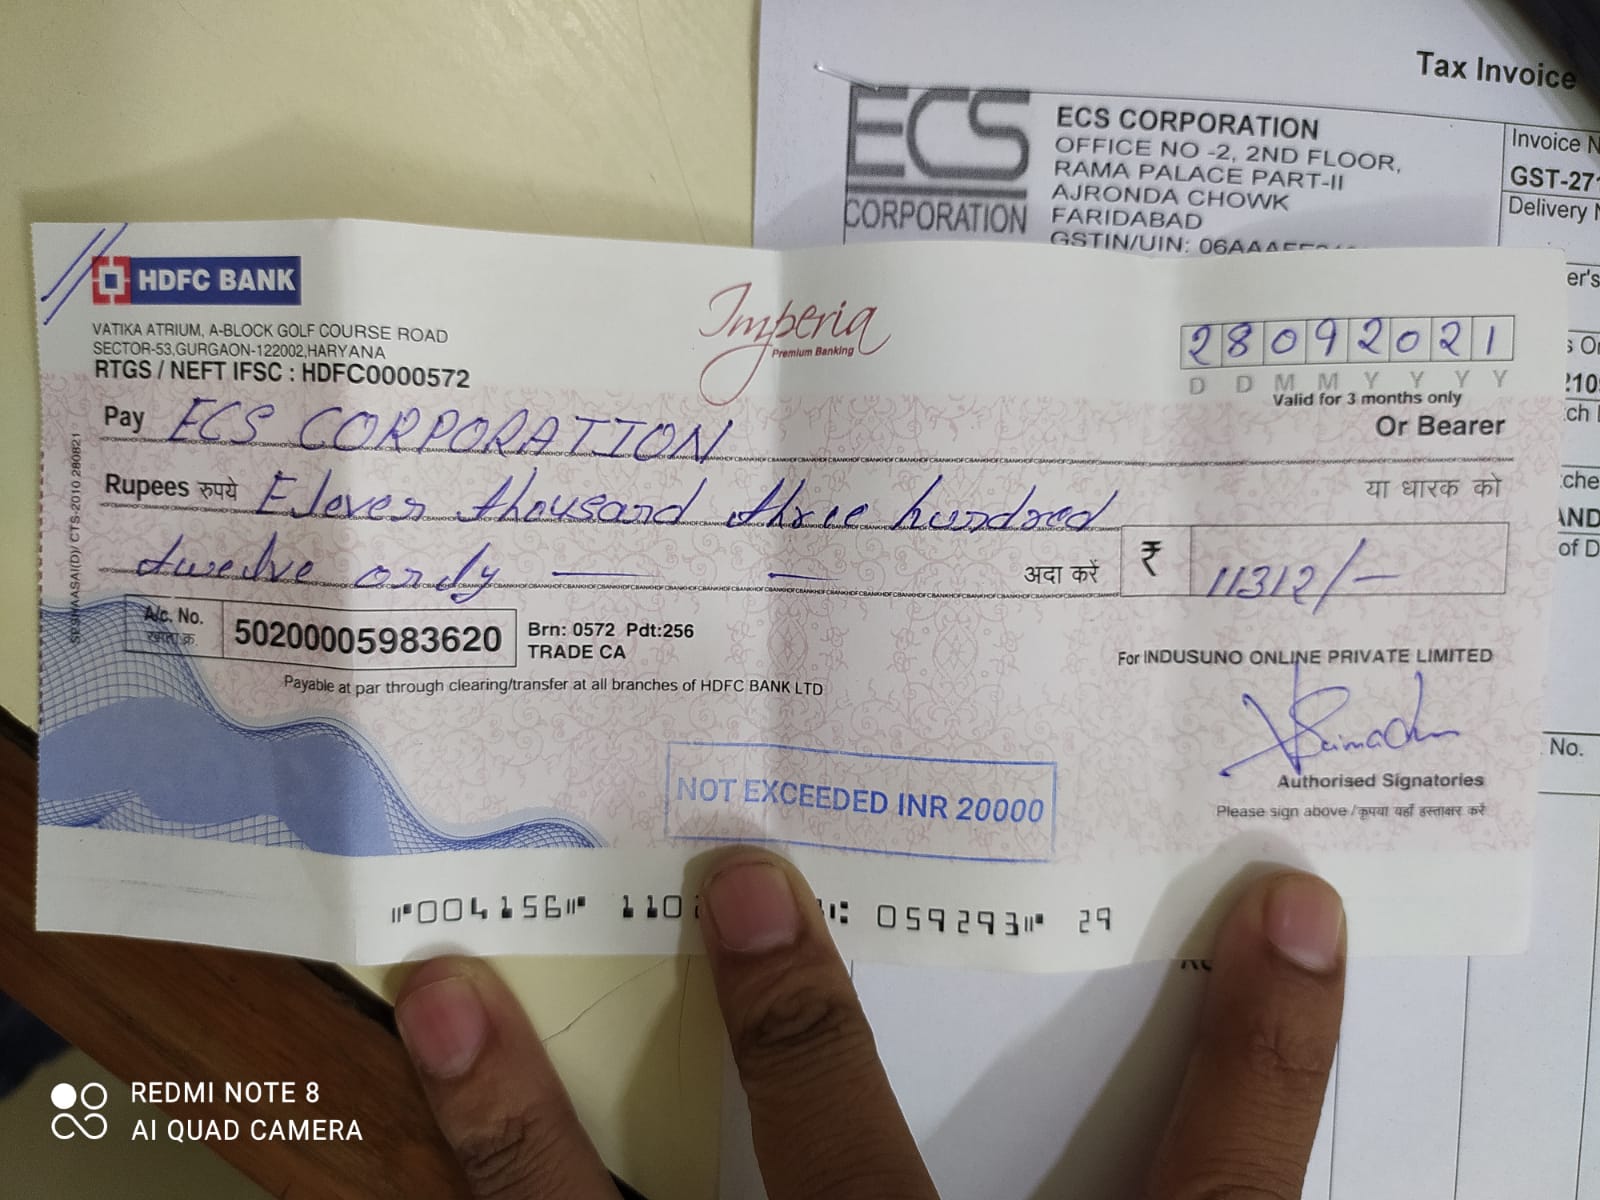 Tax Invoice
ECS
CORPORATION
ECS CORPORATION
OFFICE NO -2, 2ND FLOOR,
RAMA PALACE PART-II
AJRONDA CHOWK
FARIDABAD
GSTIN/UIN:
Invoice
GST-27
Delivery
HDFC BANK
VATIKA ATRIUM, A-BLOCK GOLF COURSE ROAD
SECTOR-53,GURGAON-122002,HARYANA
RTGS / NEFT IFSC : HDFC0000572
Imperia
Premium Banking
28092021
D D M M Y Y Y Y
Valid for 3 months only
Pay ECS CORPORATION
Or Bearer
Rupees रुपये Eleven thousand three hundred
या धारक को
twelve only
अदा करें ₹ 11312/-
A/c. No.
खाता क्र.
50200005983620
Brn: 0572 Pdt:256
TRADE CA
Payable at par through clearing/transfer at all branches of HDFC BANK LTD
For INDUSUNO ONLINE PRIVATE LIMITED
NOT EXCEEDED INR 20000
Authorised Signatories
Please sign above / कृपया यहाँ हस्ताक्षर करें
CTS-2010 280821
No.
004156 110 059293 29
REDMI NOTE 8
AI QUAD CAMERA